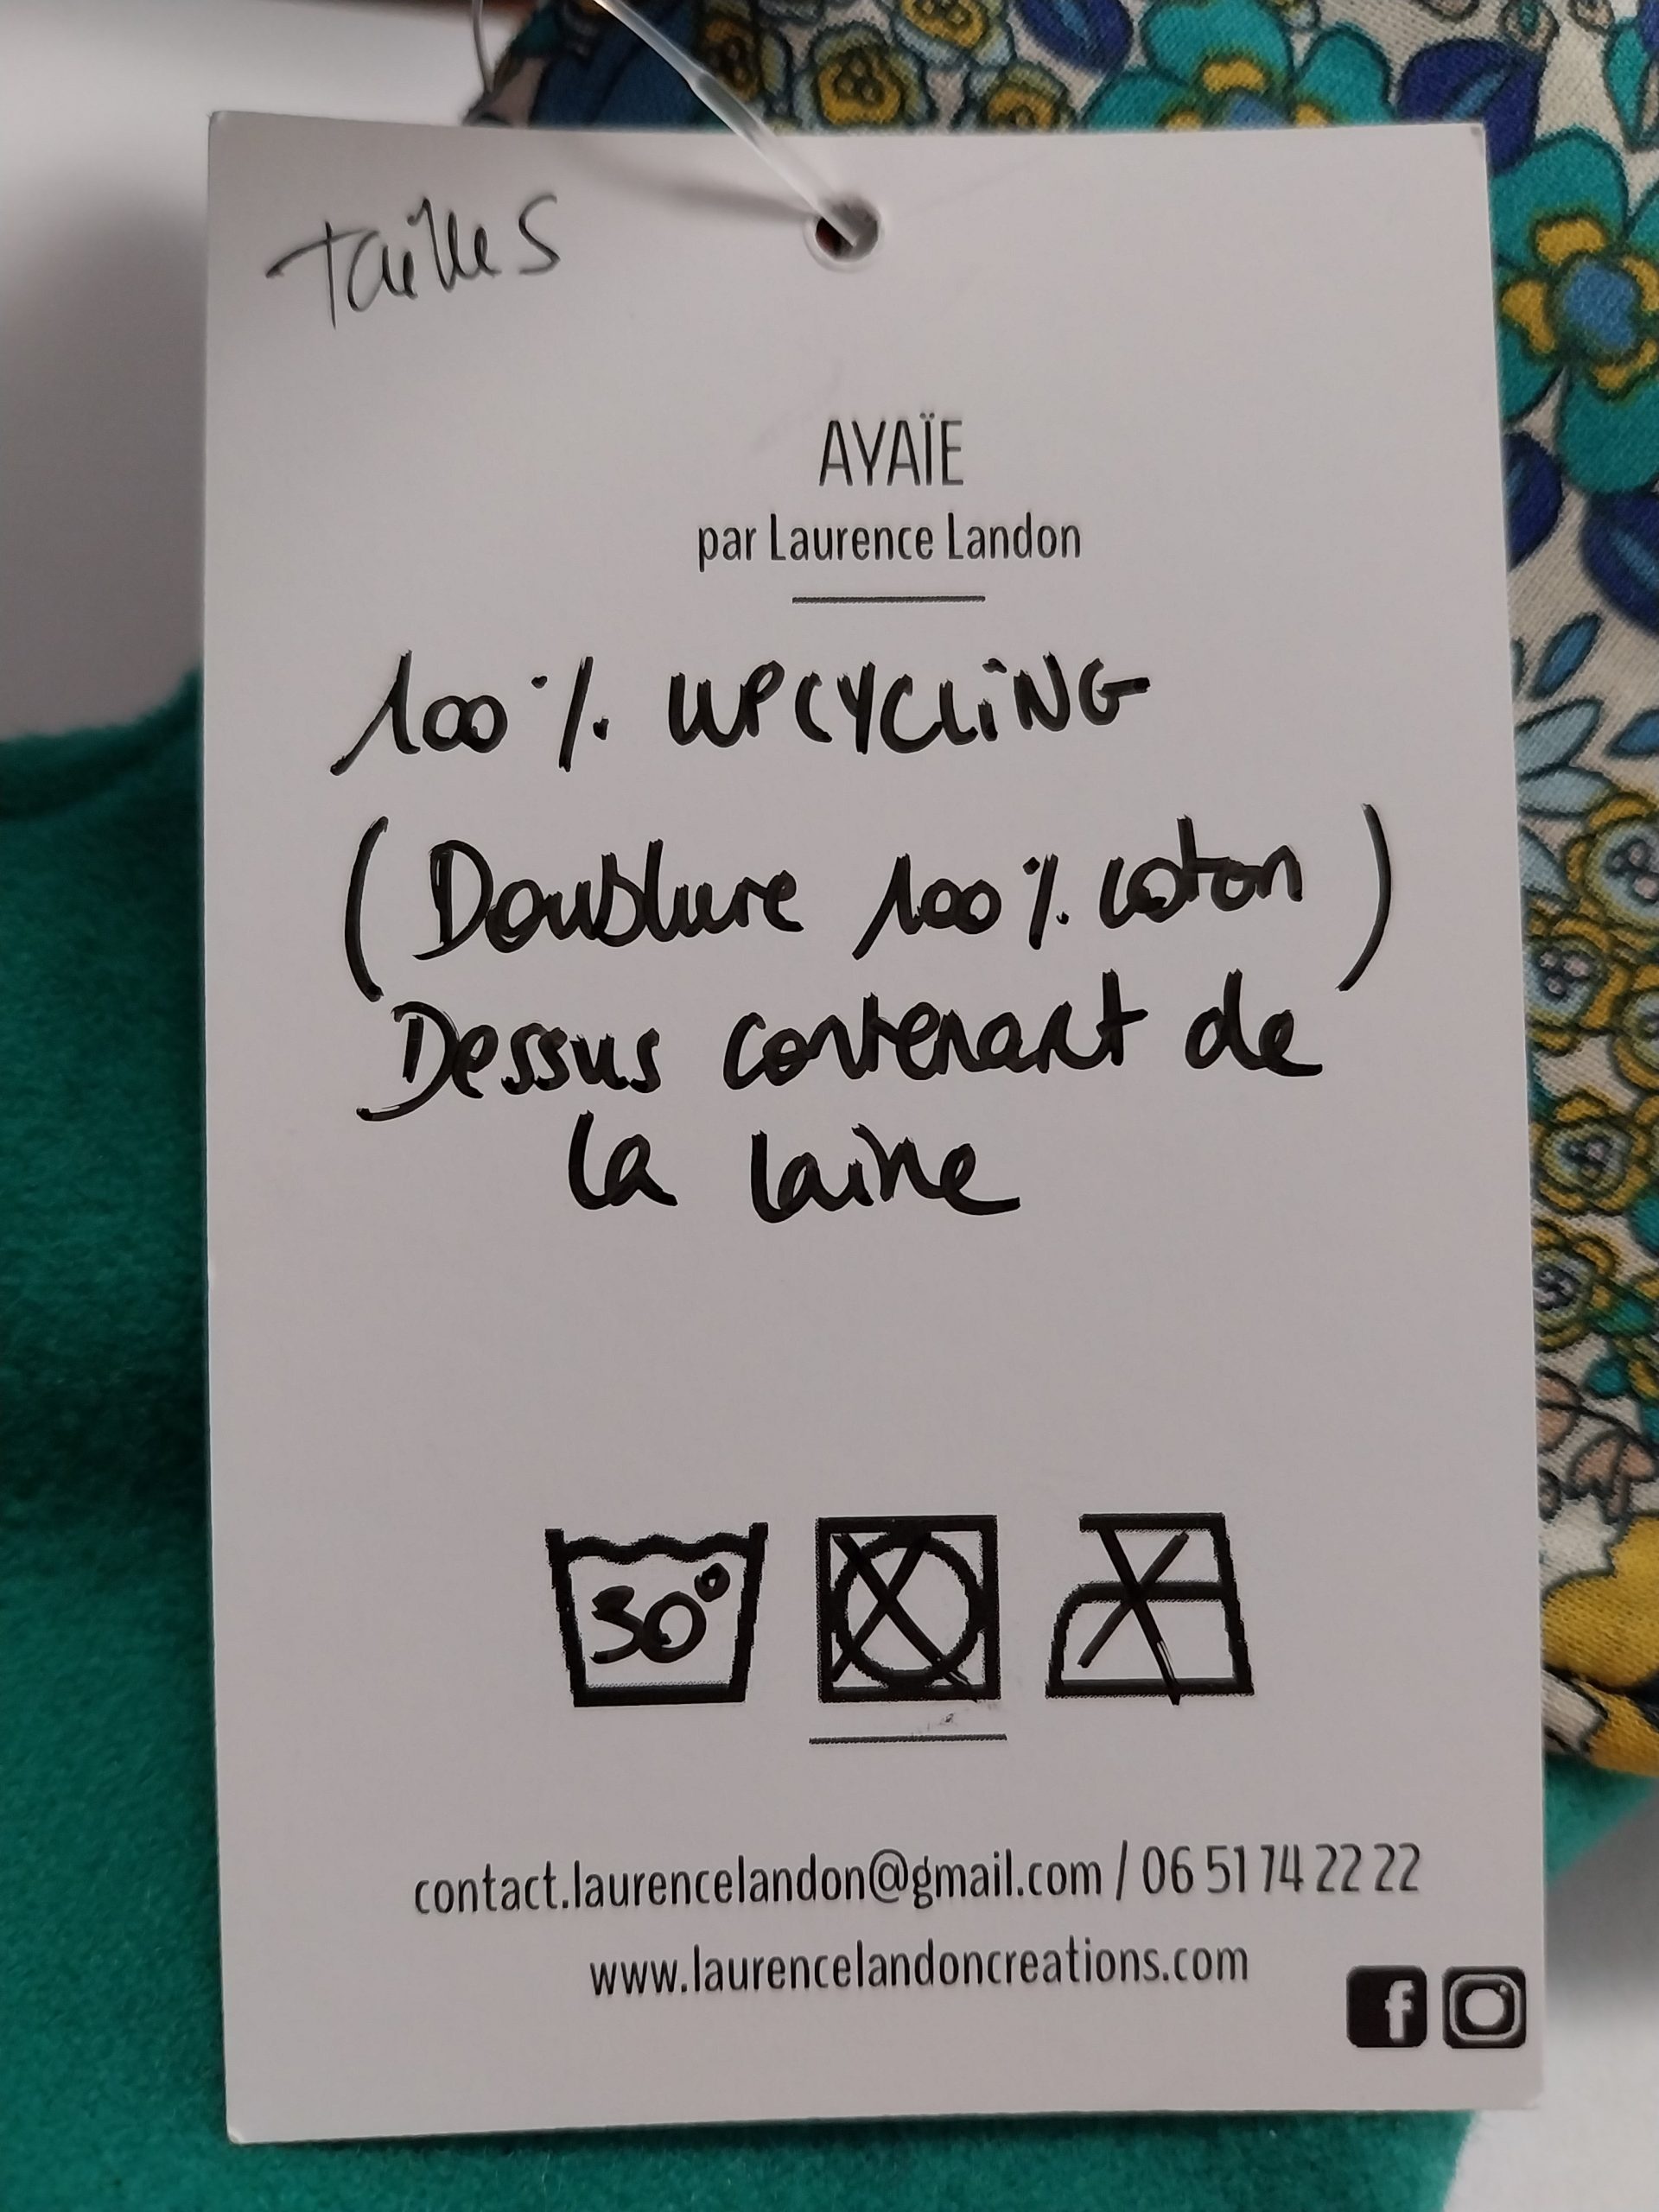 Taille S
AYAÏE
par Laurence Landon
100% UPCYCLING
(Doublure 100% coton)
Dessus contenant de
la laine
30°
contact.laurencelandon@gmail.com / 06 51 74 22 22
www.laurencelandoncreations.com